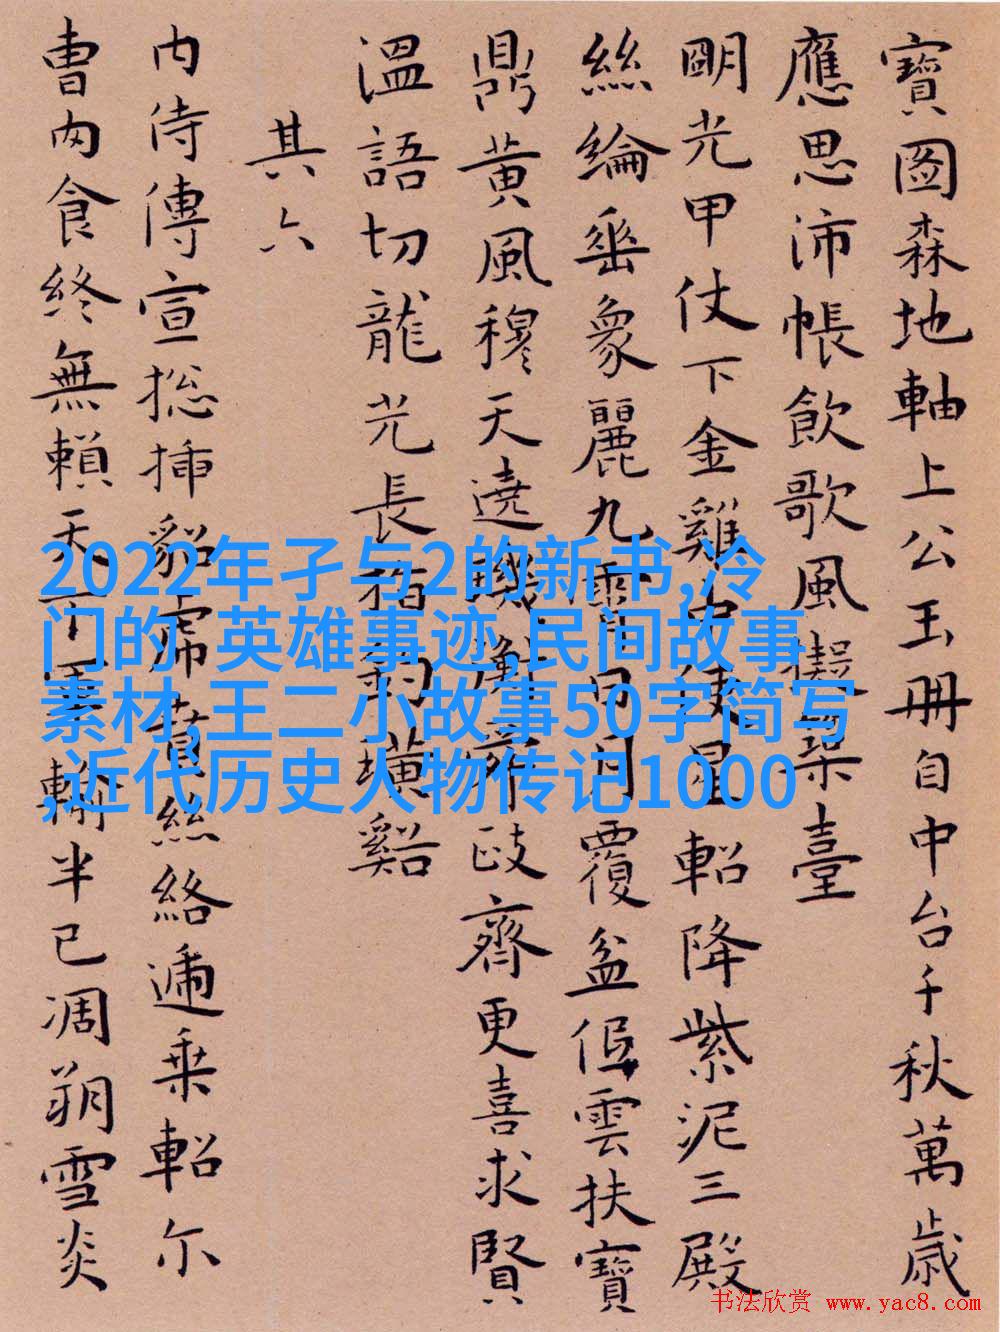 寶圖森地軸上公玉冊自中台千秋萬歲
應思沛帳飲歌風擬築臺
明光甲仗下金雞中使星軺降紫泥三殿
絲綸垂象麗九霄日月覆盆伍雲扶寶
鼎黃風穆天遶璣衡齊政齊更喜求賢
溫語切龍光長指釣璜谿
其六
內侍傳宣捴揷貂席前絲絡遞乘軺尔
曹內食終無賴天下軍輸半已凋朔雪炎
2022年孑与2的新书,冷
门的 英雄事迹,民间故事
素材,王二小故事50字简写
,近代历史人物传记1000
书法欣赏 www.yac8.com